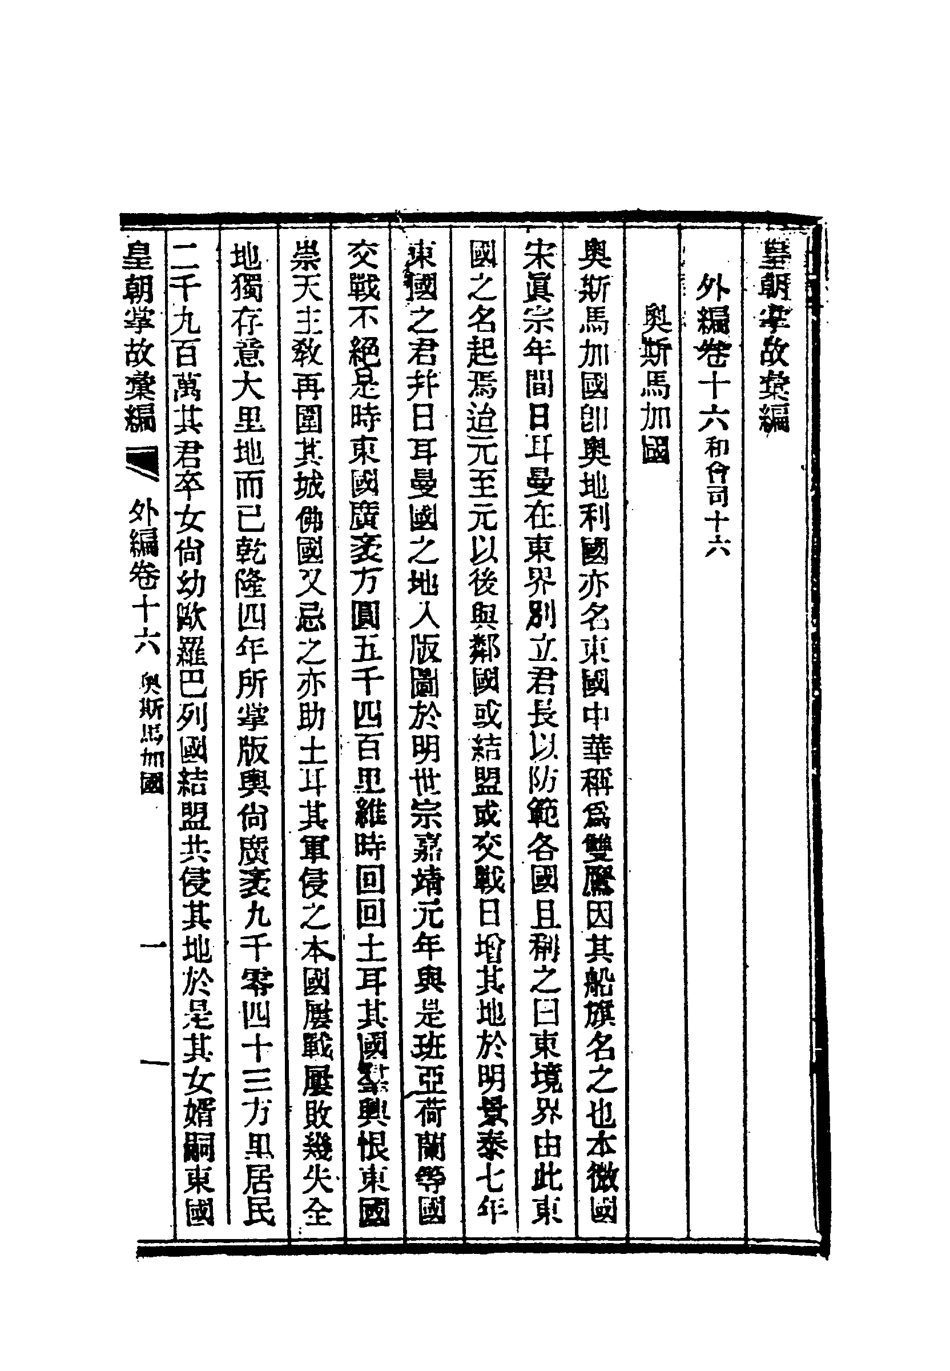 皇朝掌故彙編
外編卷十六和會司十六
奧斯馬加國
奧斯馬加國卽奧地利國亦名東國中華稱爲雙鷹因其船旗名之也本微國
宋眞宗年間日耳曼在東界別立君長以防範各國且稱之曰東境界由此東
國之名起焉迨元至元以後與鄰國或結盟或交戰日增其地於明景泰七年
東國之君幷日耳曼國之地入版圖於明世宗嘉靖元年與是班亞荷蘭等國
交戰不絕是時東國廣袤方圓五千四百里維時回回土耳其國勃興恨東國
崇天主敎再圍其城佛國又忌之亦助土耳其軍侵之本國屢戰屢敗幾失全
地獨存意大里地而已乾隆四年所掌版輿尙廣袤九千零四十三方里居民
二千九百萬其君卒女尙幼歐羅巴列國結盟共侵其地於是其女婿嗣東國
皇朝掌故彙編 外編卷十六 奧斯馬加國 一